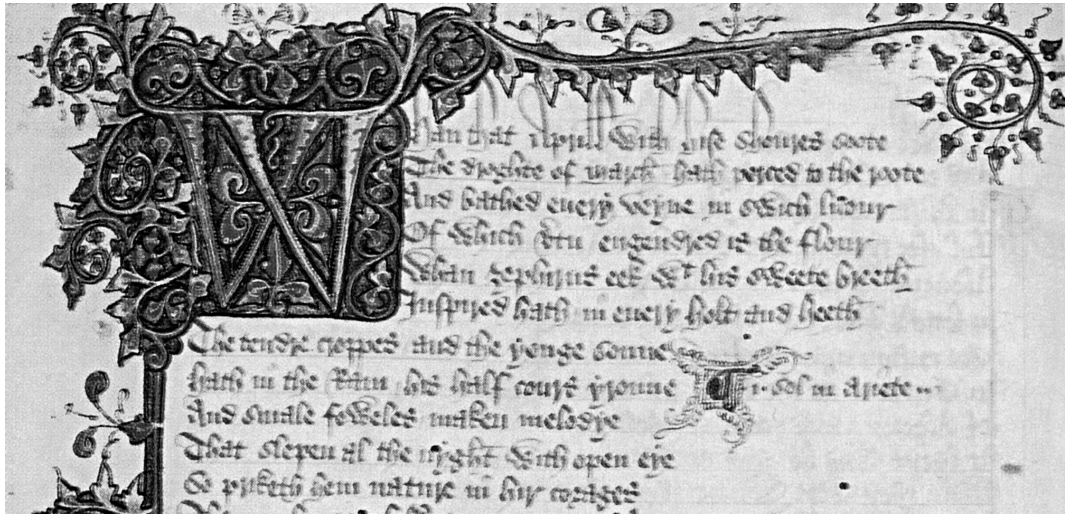 Whan that Aprill with hise shoures soote
The droghte of march hath perced to the roote
And bathed euery veyne in swich licour
Of which vtu engendred is the flour
Whan zephirus eek wt his sweete breeth
Inspired hath in euery holt and heeth
The tendre croppes and the yonge sonne
hath in the Ram his half cours yronne i. sol in ariete
And smale foweles maken melodye
That slepen al the nyght with open eye
So priketh hem nature in hir corages